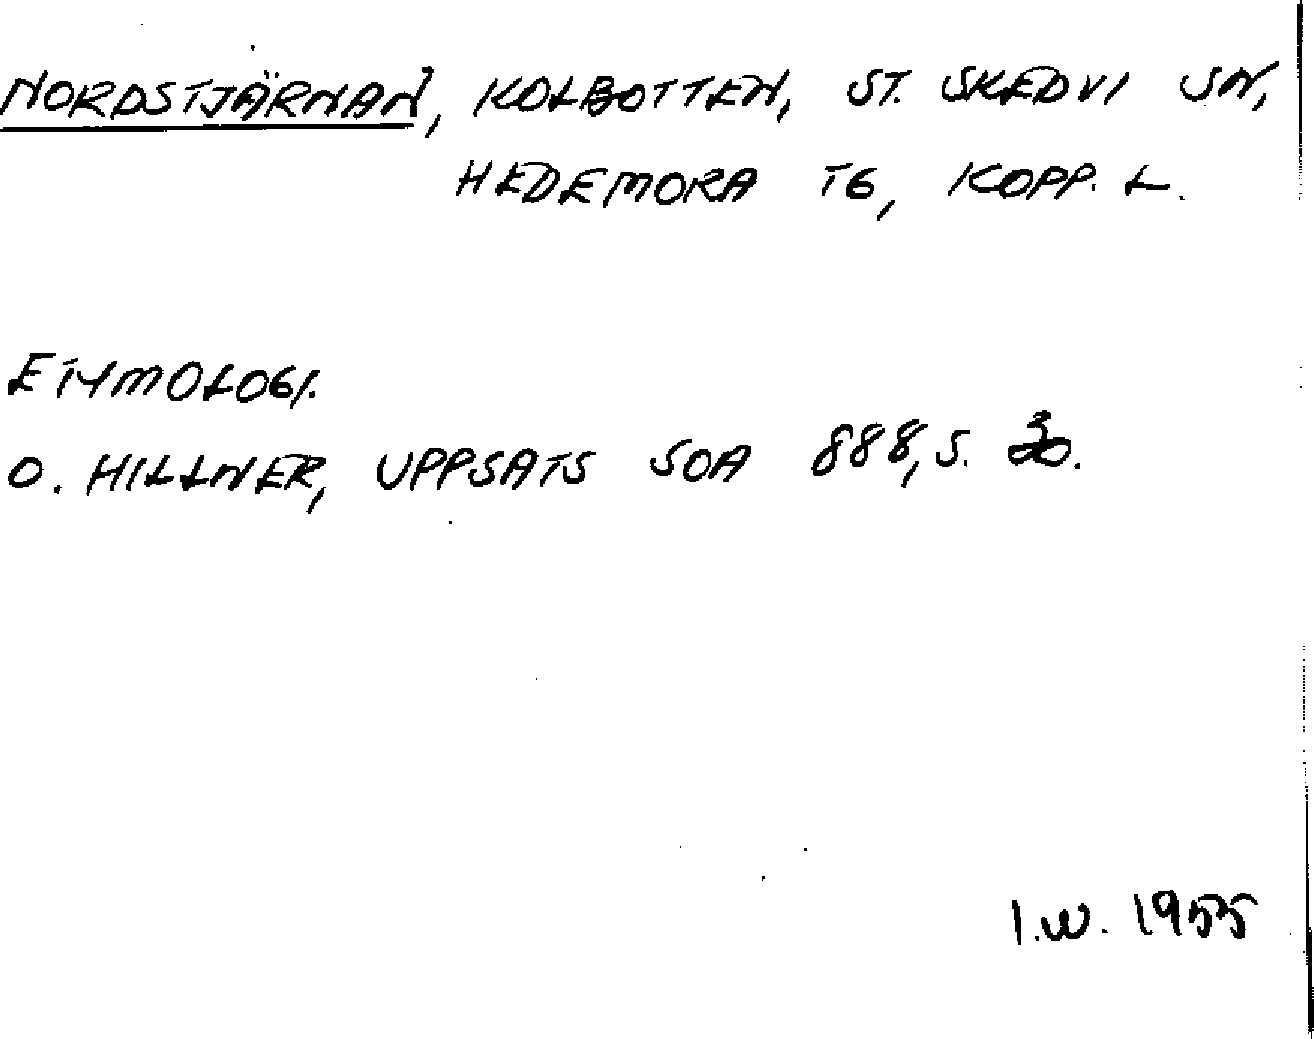 NORDSTJÄRNAN, KOLBOTTEN, ST. SKEDVI SN,
HEDEMORA TG, KOPP. L.
ETYMOLOGI.
O. HILLNER, UPPSATS SOA 888, S.
I.W. 1955